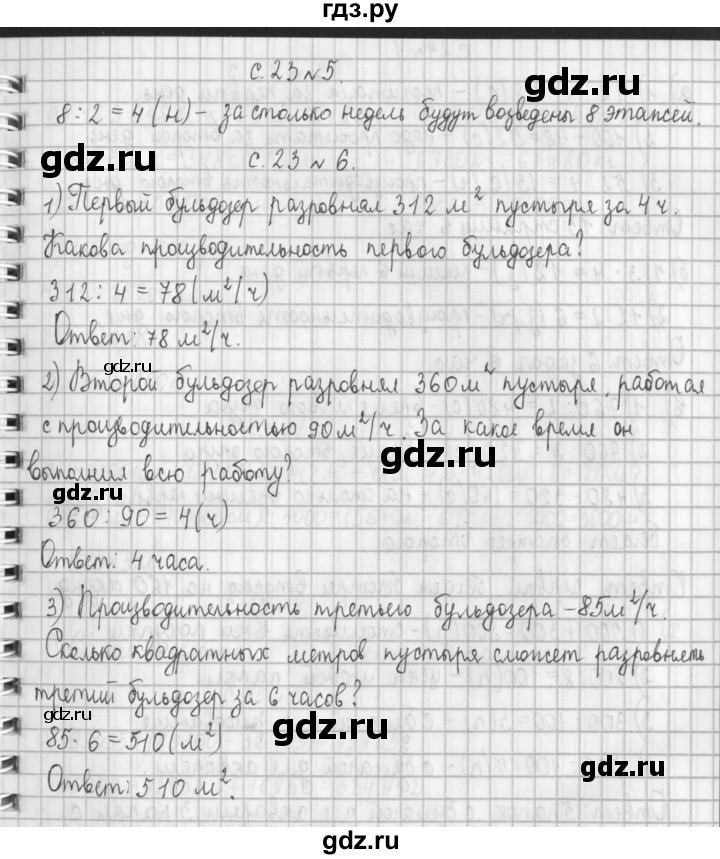 гдз.ру
с. 23 № 5.
8 : 2 = 4 (н) - за столько недель будут возведены 8 этажей.
gdz.ru
с. 23 № 6.
gdz.ru
1) Первый бульдозер разровнял 312 м² пустыря за 4 ч.
Какова производительность первого бульдозера?
gdz.ru
312 : 4 = 78 (м²/ч)
Ответ: 78 м²/ч.
gdz.ru
gdz.ru
2) Второй бульдозер разровнял 360 м² пустыря, работая
с производительностью 90 м²/ч. За какое время он
gdz.ru
выполнил всю работу?
gdz.ru
360 : 90 = 4 (ч)
Ответ: 4 часа.
gdz.ru
3) Производительность третьего бульдозера - 85 м²/ч.
gdz.ru
Сколько квадратных метров пустыря сможет разровнять
третий бульдозер за 6 часов?
gdz.ru
gdz.ru
85 · 6 = 510 (м²)
Ответ: 510 м².
gdz.ru
gdz.ru